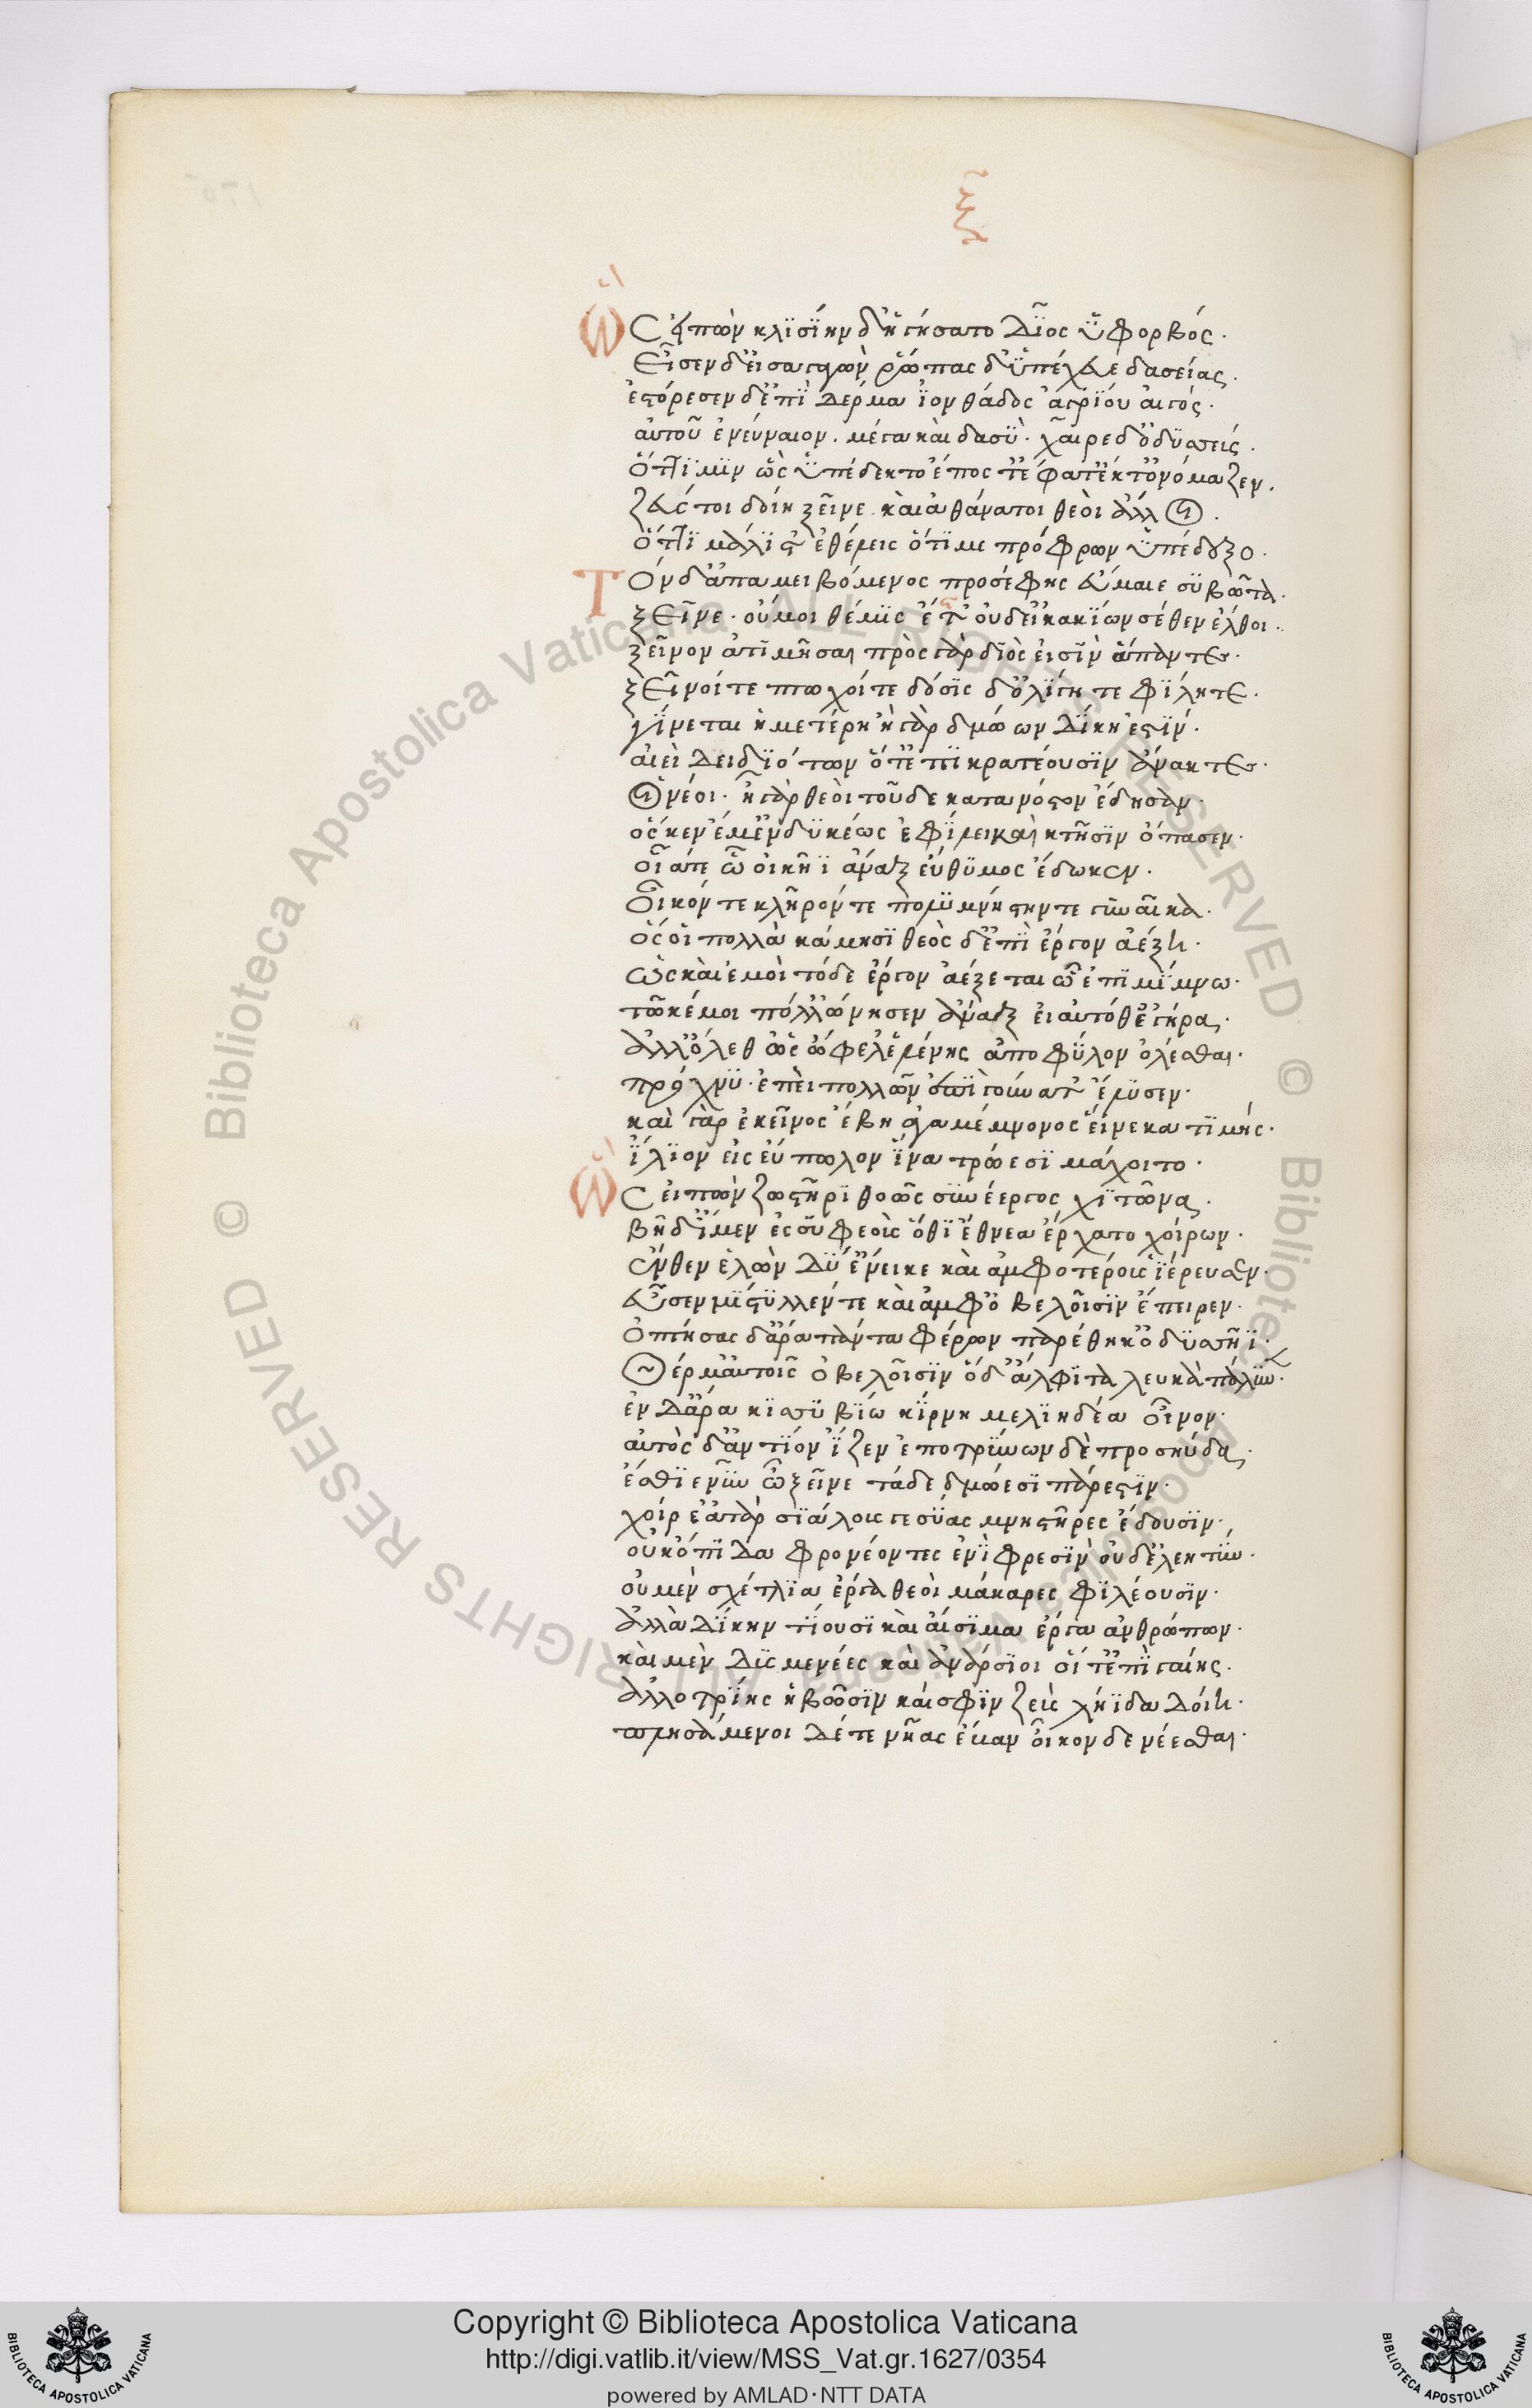 ξ̃
Ὣς εἰπὼν κλϊσΐηνδ' ἡγήσατο δῖος ὑφορβός.
εἷσεν δ' εἰσαγαγὼν ῥῶπας δ' ὑπέχευε δασείας.
ἐστόρεσεν δ' ἐπὶ δέρμα ἰονθάδος ἀγρίου αἰγός.
αὐτοῦ ἐνεύναιον. μέγα καὶ δασύ. χαῖρε δ' ὀδυσσεύς.
ὅττί μιν ὣς ὑπέδεκτο ἔπος τ' ἔφατ' ἔκ τ' ὀνόμαζεν.
ζεύς τοι δοίη ξεῖνε καὶ ἀθάνατοι θεοὶ ἄλλοι.
ὅττι μάλιστ' ἐθέλεις ὅτι με πρόφρων ὑπέδεξο.
Τόνδ' ἀπαμειβόμενος προσέφης εὔμαιε συβῶτα.
ξεῖνε. οὔ μοι θέμις ἔστ' οὐδ' εἰ κακίων σέθεν ἔλθοι.
ξεῖνον ἀτιμῆσαι πρὸς γὰρ διός εἰσὶν ἅπαντες.
ξεῖνοί τε πτωχοί τε δόσις δ' ὀλίγη τε φίλη τε.
γίνεται ἡμετέρη ἡ γὰρ δμώων δίκη ἐστίν.
αἰεὶ δειδιότων ὅτ' ἐπικρατέουσιν ἄνακτες.
οἱ νέοι. ἦ γὰρ θεοὶ τοῦδε κατα νόστον ἔδησαν.
ὅς κεν ἔμ' ἐνδυκέως ἐφίλει καὶ κτῆσιν ὄπασεν.
οἷά τε ᾧ οἰκῆϊ ἄναξ εὔθυμος ἔδωκεν.
οἶκόν τε κλῆρόν τε πολυμνήστην τε γυναῖκα.
ὅς οἱ πολλὰ κάμησι θεὸς δ' ἐπὶ ἔργον ἀέξῃ.
ὡς καὶ ἐμοὶ τόδε ἔργον ἀέξεται ᾧ ἐπιμίμνω.
τῶ κέ μοι πόλλ' ὤνησεν ἄναξ εἰ αὐτόθ' ἐγήρα.
ἀλλ' ὄλεθ' ὡς ὤφελ' ἑλένης ἀπο φύλον ὀλέσθαι.
πρόχνυ. ἐπεὶ πολλῶν ὑπὸ γούνατ' ἔλυσεν.
καὶ γὰρ ἐκεῖνος ἔβη ἀγαμέμνονος εἵνεκα τιμῆς.
ἴλιον εἰς εὔπωλον ἵνα τρώεσι μάχοιτο.
Ὣς εἰπὼν ζωστῆρι θοῶς συνέεργος χιτῶνα.
βῆ δ' ἴμεν ἐς συφεοὺς ὅθι ἔθνεα ἔρχατο χοίρων.
ἔνθεν ἑλὼν δύ' ἔνεικε καὶ ἀμφοτέρους ἱέρευσεν.
εὗσεν μίστυλλέν τε καὶ ἀμφ' ὀβελοῖσιν ἔπειρεν.
ὀπτήσας δ' ἄρα πάντα φέρων παρέθηκ' ὀδυσσῆϊ.
θέρμ' αὐτοῖς ὀβελοῖσιν ὁ δ' ἄλφιτα λευκὰ πάλυν.
ἐν δ' ἄρα κισσυβίω κίρνη μελιηδέα οἶνον.
αὐτὸς δ' ἀντίον ἷζεν ἐποτρύνων δὲ προσηύδα.
ἔσθιε νῦν ὦ ξεῖνε τάδε δμώεσι πάρεστιν.
χοίρε' ἀτὰρ σιάλους γε σύας μνηστῆρες ἔδουσιν.
οὐκ ὄπιδα φρονέοντες ἐνὶ φρεσὶν οὐδ' ἐλεητύν.
οὐ μὲν σχέτλια ἔργα θεοὶ μάκαρες φιλέουσιν.
ἀλλὰ δίκην τίουσι καὶ αἴσιμα ἔργα ἀνθρώπων.
καὶ μὲν δυσμενέες καὶ ἀνάρσιοι οἵ τ' ἐπὶ γαίης.
ἀλλοτρίης ἡβῶσιν καί σφιν ζεὺς ληΐδα δόιη.
πλησάμενοι δέ τε νῆας ἔβαν οἶκον δε νέεσθαι.
Copyright © Biblioteca Apostolica Vaticana
http://digi.vatlib.it/view/MSS_Vat.gr.1627/0354
powered by AMLAD·NTT DATA